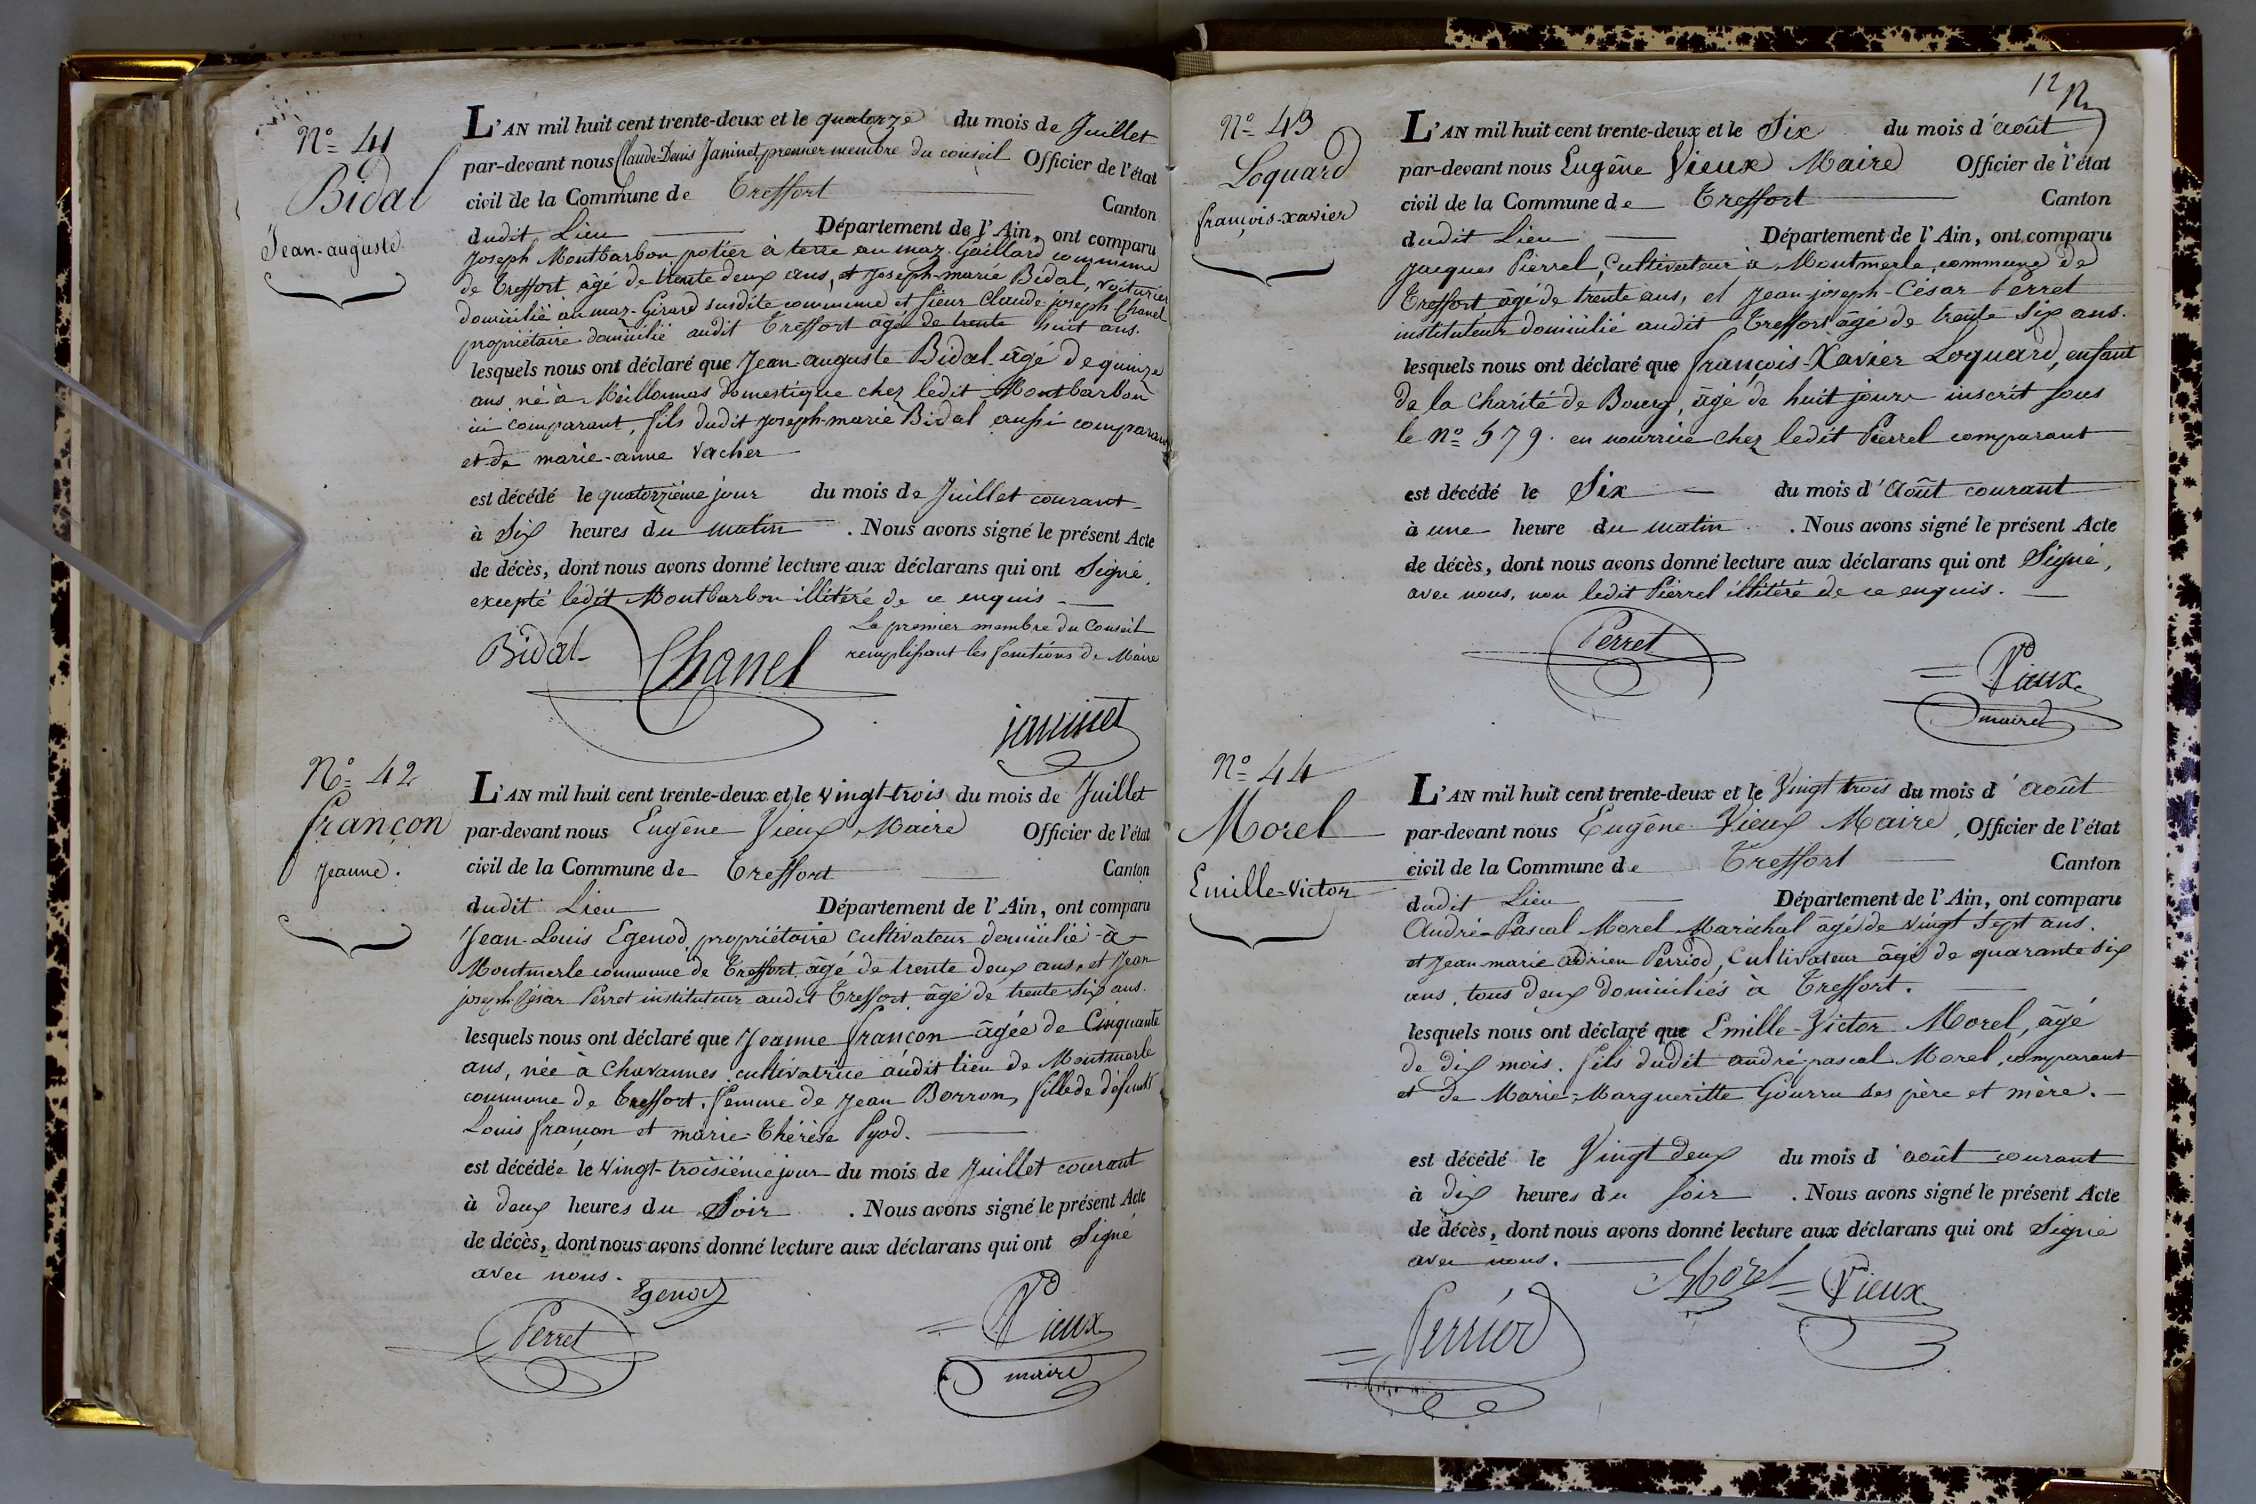 Nº 41
Bidal
Jean-auguste
L'AN mil huit cent trente-deux et le quatorze du mois de Juillet
par-devant nous Claude-Denis Janinet, premier membre du conseil Officier de l'état
civil de la Commune de Treffort Canton
dudit Lieu Département de l'Ain, ont comparu
Joseph Montbarbon potier à terre au maz-Gaillard commune
de Treffort âgé de trente deux ans, et Joseph-marie Bidal, voiturier
domicilié au maz-Girard susdite commune et sieur Claude-joseph Chanel
propriétaire domicilié audit Treffort âgé de trente huit ans.
lesquels nous ont déclaré que Jean-auguste Bidal âgé de quinze
ans né à Meillonnas domestique chez ledit Montbarbon
ici comparant, fils dudit Joseph-marie Bidal aussi comparant
et de marie-anne Vacher
est décédé le quatorzième jour du mois de Juillet courant
à Six heures du matin . Nous avons signé le présent Acte
de décès, dont nous avons donné lecture aux déclarans qui ont Signé,
excepté ledit Montbarbon illitéré de ce enquis
Le premier membre du Conseil
remplissant les fonctions de Maire
Bidal Chanel
janinet
Nº 42
françon
Jeanne.
L'AN mil huit cent trente-deux et le vingt-trois du mois de Juillet
par-devant nous Eugêne Vieux Maire Officier de l'état
civil de la Commune de Treffort Canton
dudit Lieu Département de l'Ain, ont comparu
Jean-Louis Egenod, propriétaire cultivateur domicilié à
Montmerle commune de Treffort, âgé de trente deux ans, et Jean
joseph-César Perret instituteur audit Treffort âgé de trente six ans.
lesquels nous ont déclaré que Jeanne françon âgée de Cinquante
ans, née à Chavannes cultivatrice audit lieu de Montmerle
commune de Treffort, femme de Jean Borron, fille de défunts
Louis françon et marie-Thérèse Pyod.
est décédée le vingt-troisième jour du mois de Juillet courant
à deux heures du Soir . Nous avons signé le présent Acte
de décès, dont nous avons donné lecture aux déclarans qui ont Signé
avec nous.
Egenod
Perret
Vieux
maire
12
Nº 43
Loquard
françois-xavier
L'AN mil huit cent trente-deux et le Six du mois d'août
par-devant nous Eugêne Vieux Maire Officier de l'état
civil de la Commune de Treffort Canton
dudit Lieu Département de l'Ain, ont comparu
Jacques Pierrel, Cultivateur à Montmerle, commune de
Treffort âgé de trente ans, et Jean-joseph-César Perret
instituteur domicilié audit Treffort âgé de trente six ans.
lesquels nous ont déclaré que françois-Xavier Loquard, enfant
de la Charité de Bourg, âgé de huit jours inscrit sous
le Nº 579. en nourrice chez ledit Pierrel comparant
est décédé le Six du mois d'Août courant
à une heure du matin . Nous avons signé le présent Acte
de décès, dont nous avons donné lecture aux déclarans qui ont Signé,
avec nous, non ledit Pierrel illitéré de ce enquis.
Perret
Vieux
maire
Nº 44
Morel
Emille-Victor
L'AN mil huit cent trente-deux et le Vingt trois du mois d'août
par-devant nous Eugêne Vieux Maire, Officier de l'état
civil de la Commune de Treffort Canton
dudit Lieu Département de l'Ain, ont comparu
André-Pascal Morel Maréchal âgé de vingt Sept ans.
et Jean-marie adrien Perriod, Cultivateur âgé de quarante six
ans, tous deux domiciliés à Treffort.
lesquels nous ont déclaré que Emille-Victor Morel, âgé
de dix mois. fils dudit andré-pascal Morel, comparant
et de Marie-Margueritte Gourru ses père et mère.
est décédé le Vingt deux du mois d'août courant
à dix heures du soir . Nous avons signé le présent Acte
de décès, dont nous avons donné lecture aux déclarans qui ont Signé
avec nous.
Morel Vieux
Perriod